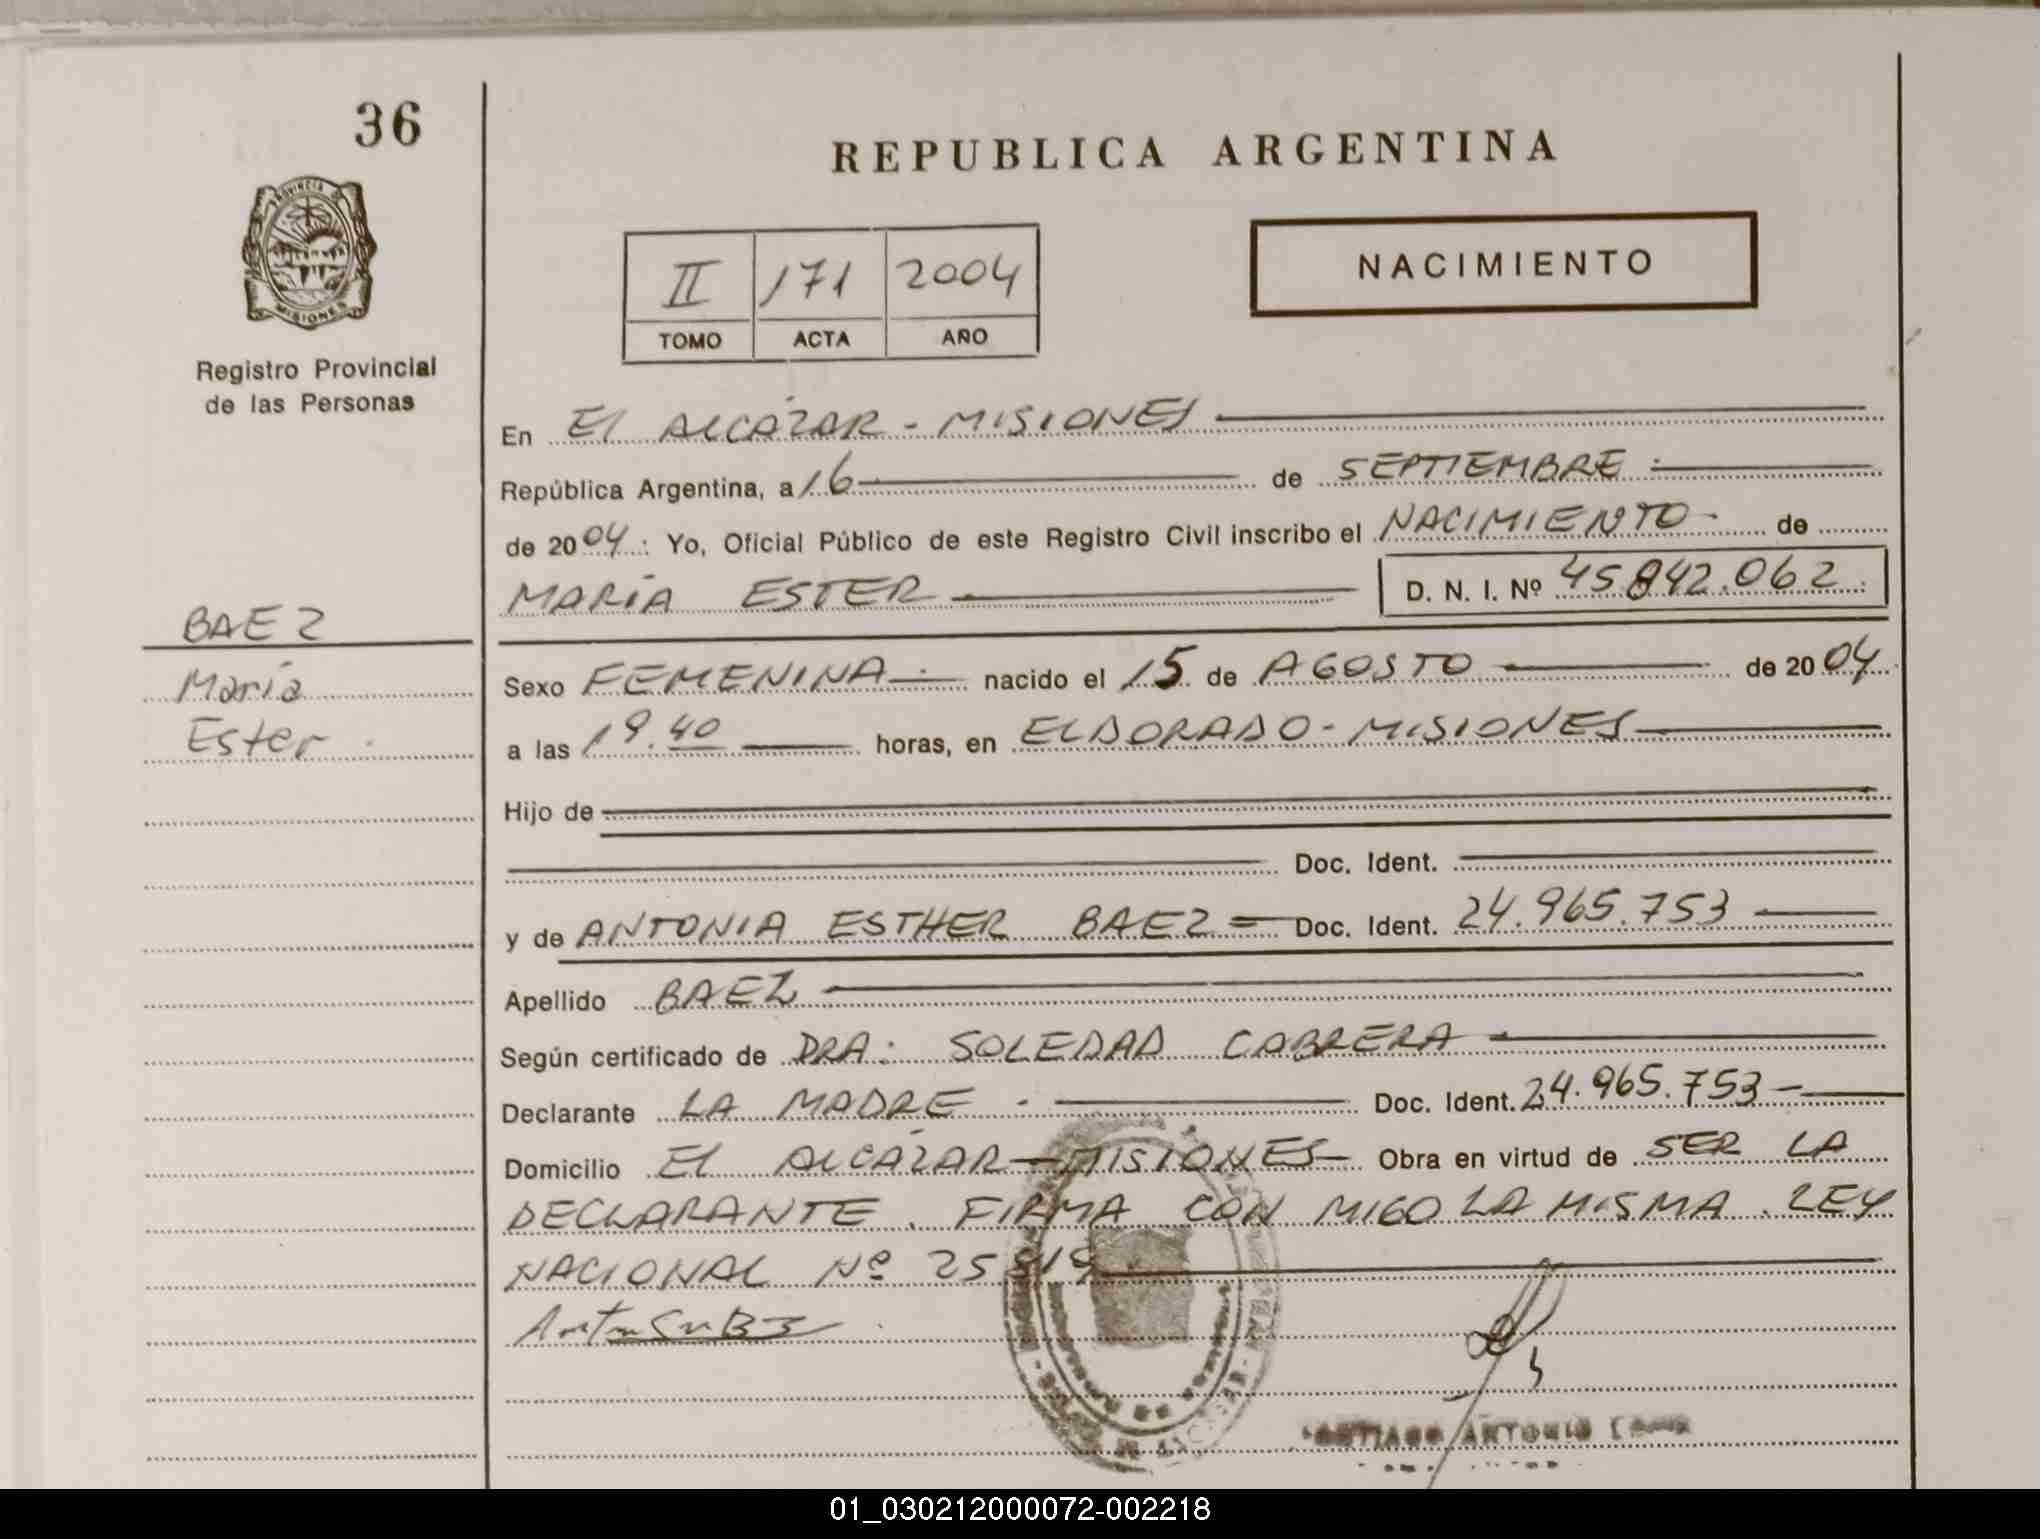 36
REPUBLICA ARGENTINA
PROVINCIA DE
MISIONES
II 171 2004
TOMO ACTA AÑO
NACIMIENTO
Registro Provincial
de las Personas
En El ALCÁZAR - MISIONES
República Argentina, a 16 de SEPTIEMBRE
de 2004 : Yo, Oficial Público de este Registro Civil inscribo el NACIMIENTO de
MARÍA ESTER D. N. I. Nº 45842.062
BAEZ
María
Ester
Sexo FEMENINA nacido el 15 de AGOSTO de 2004
a las 19.40 horas, en ELDORADO - MISIONES
Hijo de
Doc. Ident.
y de ANTONIA ESTHER BAEZ = Doc. Ident. 24.965.753
Apellido BAEZ
Según certificado de DRA: SOLEDAD CABRERA
Declarante LA MADRE . Doc. Ident. 24.965.753
Domicilio El ALCÁZAR - MISIONES Obra en virtud de SER LA
DECLARANTE . FIRMA CON MIGO LA MISMA . LEY
NACIONAL Nº 25819
ANTONIO
01_030212000072-002218